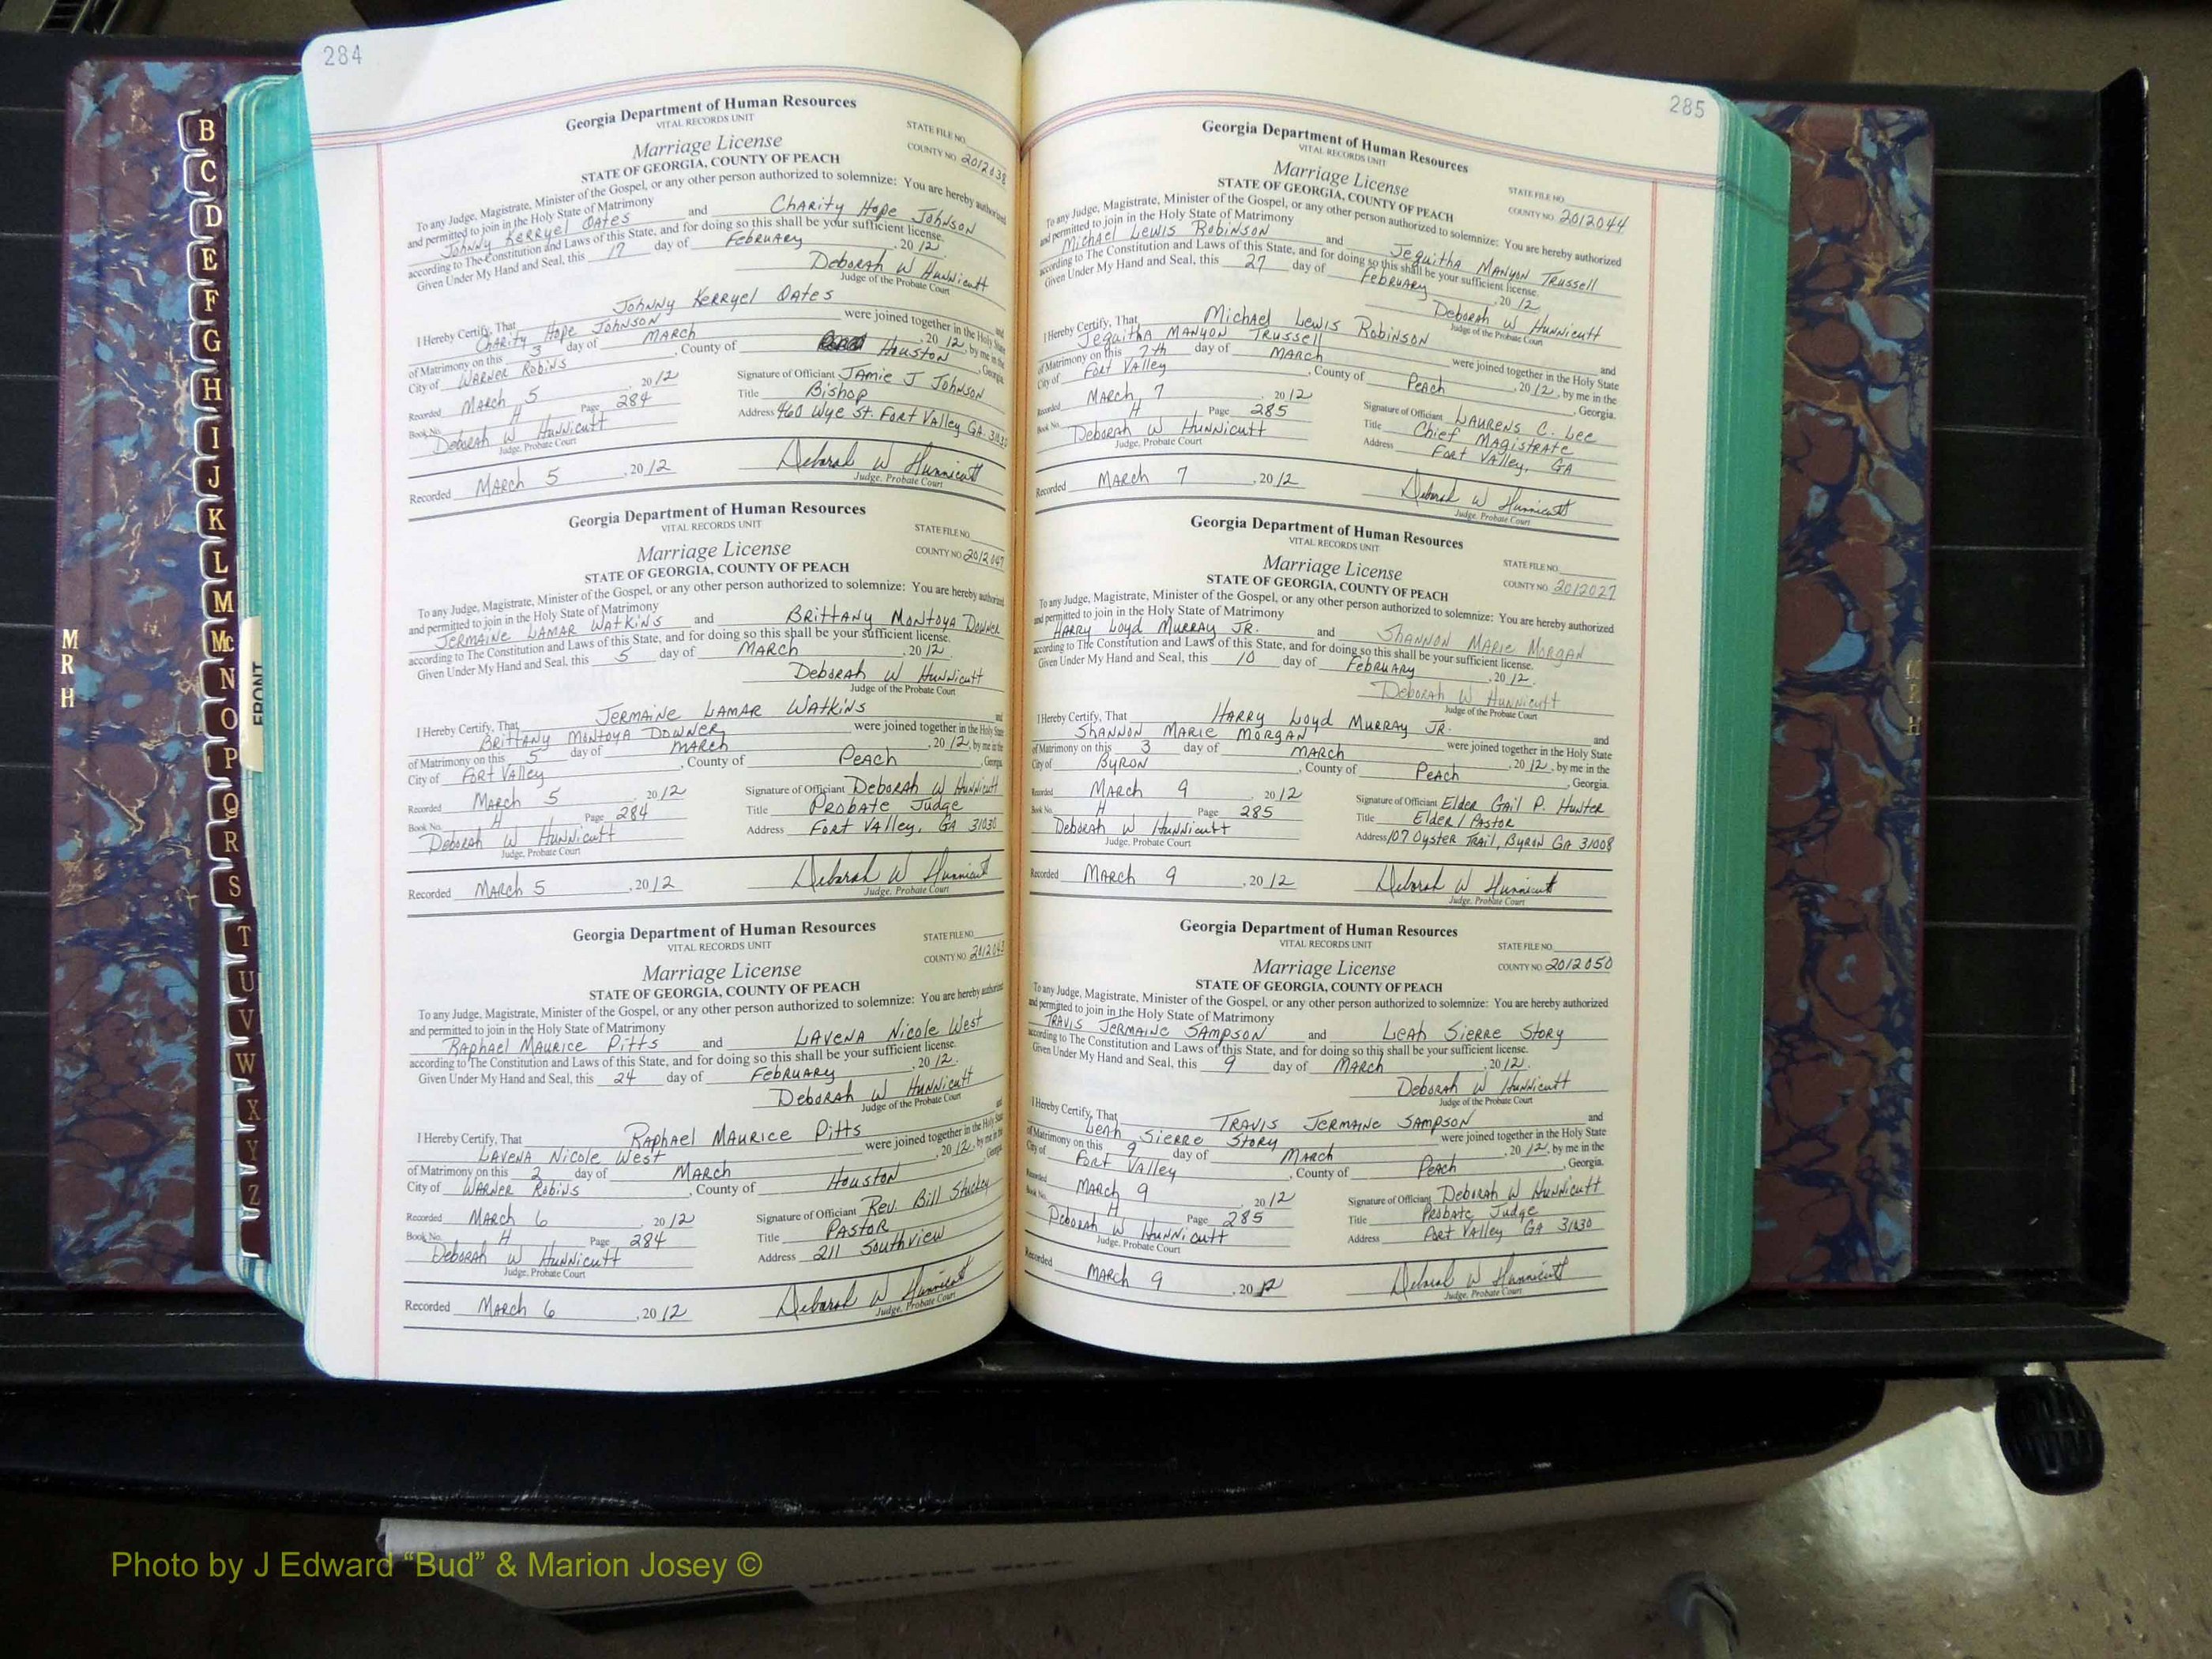 284
Georgia Department of Human Resources
VITAL RECORDS UNIT
STATE FILE NO.
Marriage License
COUNTY NO. 2012038
STATE OF GEORGIA, COUNTY OF PEACH
To any Judge, Magistrate, Minister of the Gospel, or any other person authorized to solemnize: You are hereby authorized
and permitted to join in the Holy State of Matrimony
Johnny Kerryel Oates and Charity Hope Johnson
according to The Constitution and Laws of this State, and for doing so this shall be your sufficient license.
Given Under My Hand and Seal, this 17 day of February, 20 12.
Deborah W Hunnicutt
Judge of the Probate Court
I Hereby Certify, That Johnny Kerryel Oates and
Charity Hope Johnson were joined together in the Holy State
of Matrimony on this 3 day of March, 20 12, by me in the
City of Warner Robins, County of Houston, Georgia.
Recorded March 5, 20 12
Signature of Officiant Jamie J Johnson
Book No. H Page 284
Title Bishop
Deborah W Hunnicutt
Address 460 Wye St. Fort Valley GA. 31030
Judge, Probate Court
Recorded March 5, 20 12 Deborah W Hunnicutt
Judge, Probate Court
Georgia Department of Human Resources
VITAL RECORDS UNIT
STATE FILE NO.
Marriage License
COUNTY NO. 2012047
STATE OF GEORGIA, COUNTY OF PEACH
To any Judge, Magistrate, Minister of the Gospel, or any other person authorized to solemnize: You are hereby authorized
and permitted to join in the Holy State of Matrimony
Jermaine Lamar Watkins and Brittany Montoya Downer
according to The Constitution and Laws of this State, and for doing so this shall be your sufficient license.
Given Under My Hand and Seal, this 5 day of March, 20 12.
Deborah W Hunnicutt
Judge of the Probate Court
I Hereby Certify, That Jermaine Lamar Watkins and
Brittany Montoya Downer were joined together in the Holy State
of Matrimony on this 5 day of March, 20 12, by me in the
City of Fort Valley, County of Peach, Georgia.
Recorded March 5, 20 12
Signature of Officiant Deborah W Hunnicutt
Book No. H Page 284
Title Probate Judge
Deborah W Hunnicutt
Address Fort Valley, GA 31030
Judge, Probate Court
Recorded March 5, 20 12 Deborah W Hunnicutt
Judge, Probate Court
Georgia Department of Human Resources
VITAL RECORDS UNIT
STATE FILE NO.
Marriage License
COUNTY NO. 2012043
STATE OF GEORGIA, COUNTY OF PEACH
To any Judge, Magistrate, Minister of the Gospel, or any other person authorized to solemnize: You are hereby authorized
and permitted to join in the Holy State of Matrimony
Raphael Maurice Pitts and Lavena Nicole West
according to The Constitution and Laws of this State, and for doing so this shall be your sufficient license.
Given Under My Hand and Seal, this 24 day of February, 20 12.
Deborah W Hunnicutt
Judge of the Probate Court
I Hereby Certify, That Raphael Maurice Pitts and
Lavena Nicole West were joined together in the Holy State
of Matrimony on this 2 day of March, 20 12, by me in the
City of Warner Robins, County of Houston, Georgia.
Recorded March 6, 20 12
Signature of Officiant Rev. Bill Stuckey
Book No. H Page 284
Title Pastor
Deborah W Hunnicutt
Address 211 Southview
Judge, Probate Court
Recorded March 6, 20 12 Deborah W Hunnicutt
Judge, Probate Court
285
Georgia Department of Human Resources
VITAL RECORDS UNIT
STATE FILE NO.
Marriage License
COUNTY NO. 2012044
STATE OF GEORGIA, COUNTY OF PEACH
To any Judge, Magistrate, Minister of the Gospel, or any other person authorized to solemnize: You are hereby authorized
and permitted to join in the Holy State of Matrimony
Michael Lewis Robinson and Jequitha Manyon Trussell
according to The Constitution and Laws of this State, and for doing so this shall be your sufficient license.
Given Under My Hand and Seal, this 27 day of February, 20 12
Deborah W Hunnicutt
Judge of the Probate Court
I Hereby Certify, That Michael Lewis Robinson and
Jequitha Manyon Trussell were joined together in the Holy State
of Matrimony on this 7th day of March, 20 12, by me in the
City of Fort Valley, County of Peach, Georgia.
Recorded March 7, 20 12
Signature of Officiant Laurens C. Lee
Book No. H Page 285
Title Chief Magistrate
Deborah W Hunnicutt
Address Fort Valley, GA
Judge, Probate Court
Recorded March 7, 20 12 Deborah W Hunnicutt
Judge, Probate Court
Georgia Department of Human Resources
VITAL RECORDS UNIT
STATE FILE NO.
Marriage License
COUNTY NO. 2012027
STATE OF GEORGIA, COUNTY OF PEACH
To any Judge, Magistrate, Minister of the Gospel, or any other person authorized to solemnize: You are hereby authorized
and permitted to join in the Holy State of Matrimony
Harry Loyd Murray Jr. and Shannon Marie Morgan
according to The Constitution and Laws of this State, and for doing so this shall be your sufficient license.
Given Under My Hand and Seal, this 10 day of February, 20 12.
Deborah W Hunnicutt
Judge of the Probate Court
I Hereby Certify, That Harry Loyd Murray Jr. and
Shannon Marie Morgan were joined together in the Holy State
of Matrimony on this 3 day of March, 20 12, by me in the
City of Byron, County of Peach, Georgia.
Recorded March 9, 20 12
Signature of Officiant Elder Gail P. Hunter
Book No. H Page 285
Title Elder / Pastor
Deborah W Hunnicutt
Address 107 Oyster Trail, Byron GA 31008
Judge, Probate Court
Recorded March 9, 20 12 Deborah W Hunnicutt
Judge, Probate Court
Georgia Department of Human Resources
VITAL RECORDS UNIT
STATE FILE NO.
Marriage License
COUNTY NO. 2012050
STATE OF GEORGIA, COUNTY OF PEACH
To any Judge, Magistrate, Minister of the Gospel, or any other person authorized to solemnize: You are hereby authorized
and permitted to join in the Holy State of Matrimony
Travis Jermaine Sampson and Leah Sierre Story
according to The Constitution and Laws of this State, and for doing so this shall be your sufficient license.
Given Under My Hand and Seal, this 9 day of March, 20 12.
Deborah W Hunnicutt
Judge of the Probate Court
I Hereby Certify, That Travis Jermaine Sampson and
Leah Sierre Story were joined together in the Holy State
of Matrimony on this 9 day of March, 20 12, by me in the
City of Fort Valley, County of Peach, Georgia.
Recorded March 9, 20 12
Signature of Officiant Deborah W Hunnicutt
Book No. H Page 285
Title Probate Judge
Deborah W Hunnicutt
Address Fort Valley GA 31030
Judge, Probate Court
Recorded March 9, 20 12 Deborah W Hunnicutt
Judge, Probate Court
B
C
D
E
F
G
H
I
J
K
L
M
Mc
N
O
P
Q
R
S
T
U
V
W
X
Y
Z
FRONT
M
R
H
M
R
H
Photo by J Edward “Bud” & Marion Josey ©